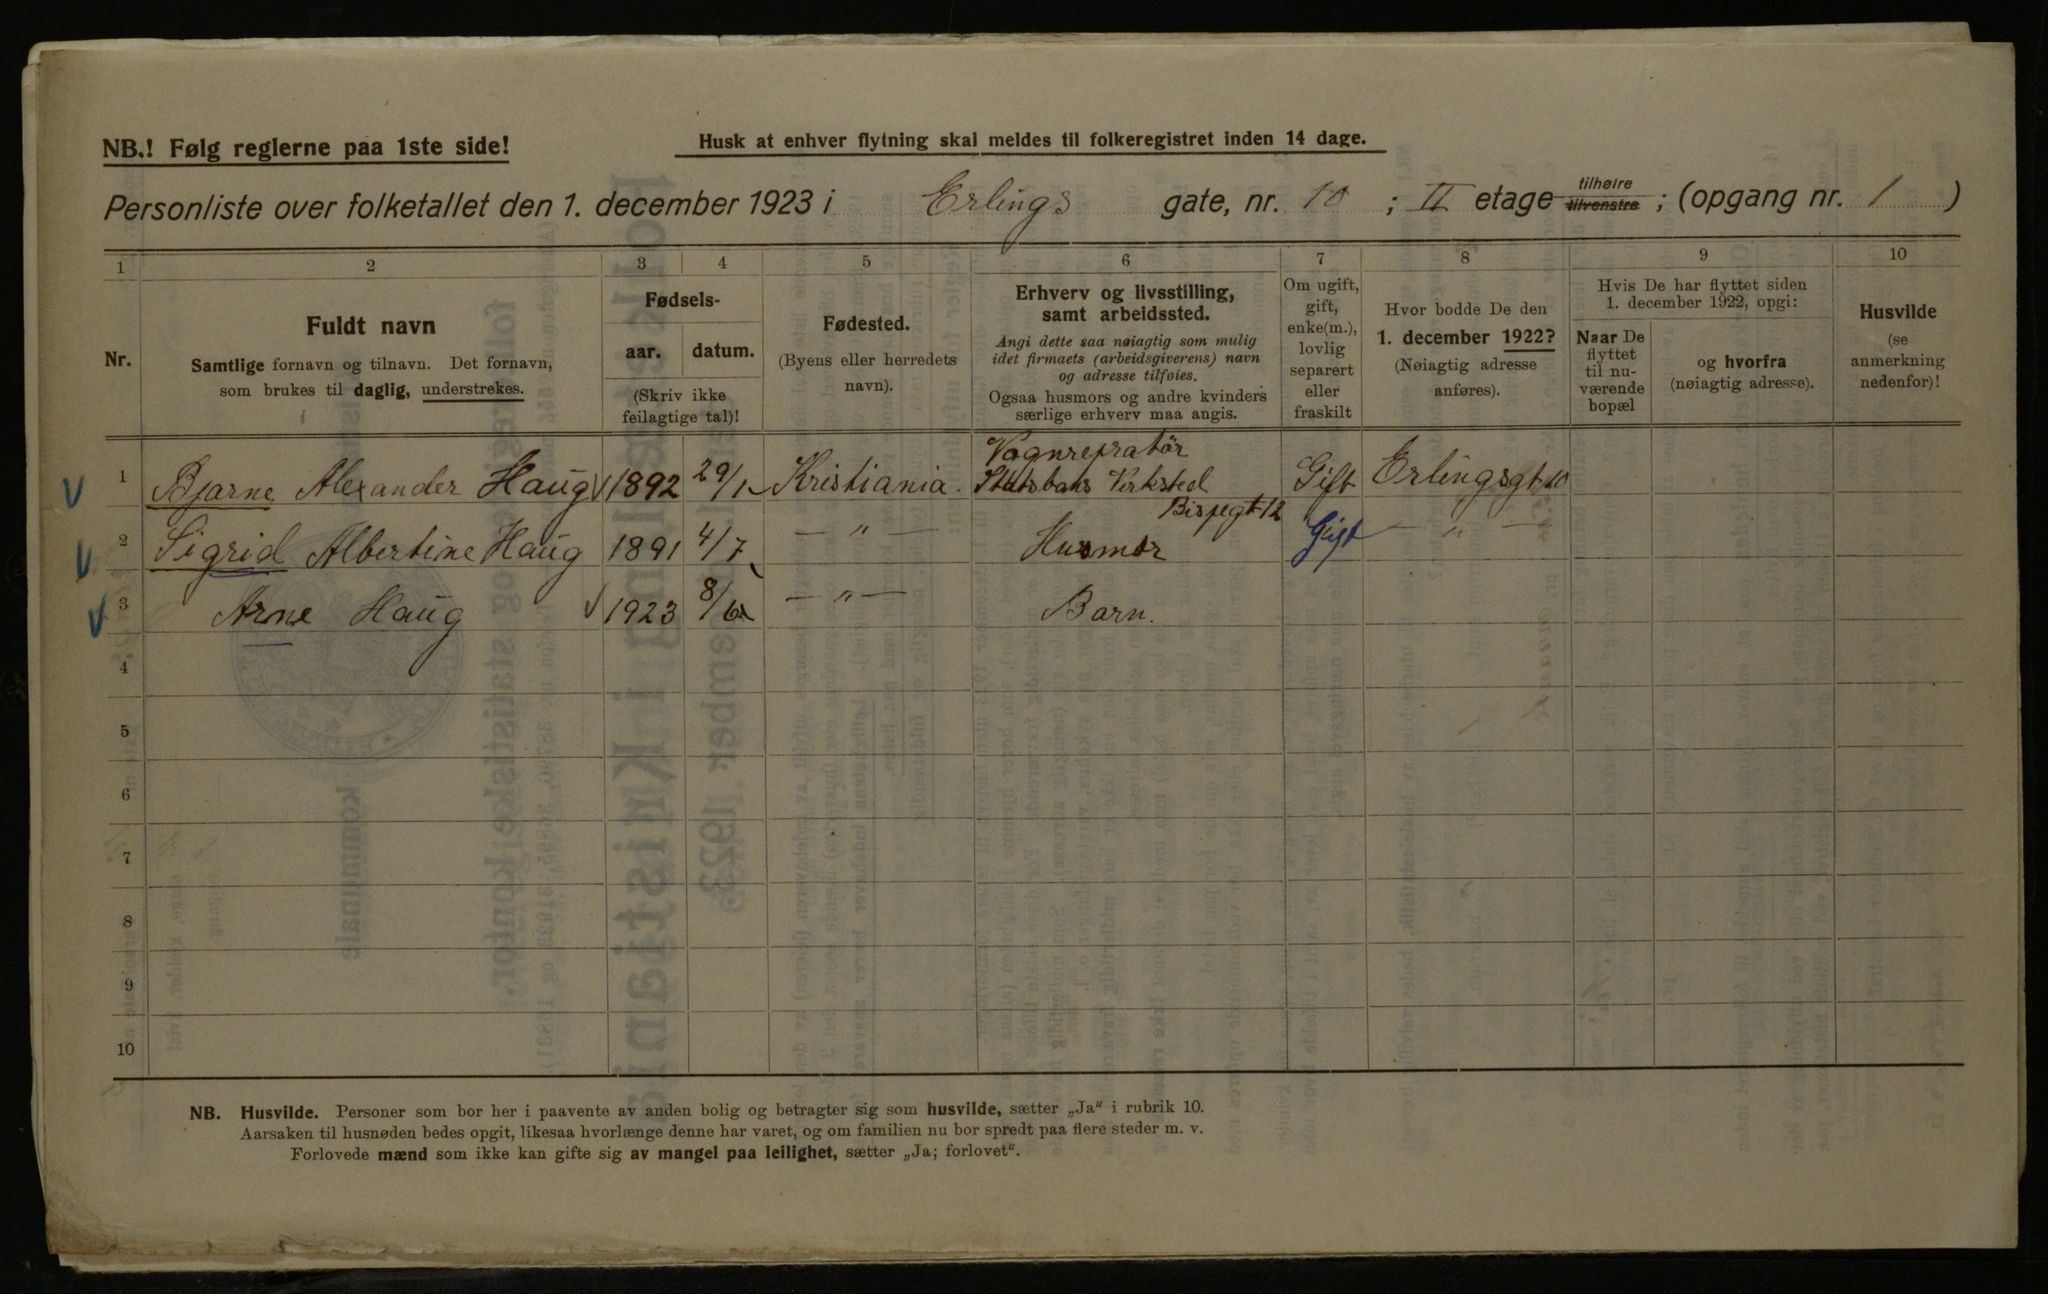 NB.! Følg reglerne paa 1ste side!
Husk at enhver flytning skal meldes til folkeregistret inden 14 dage.
Personliste over folketallet den 1. december 1923 i Erlings gate, nr. 10 ; II etage tilhøire tilvenstre ; (opgang nr. 1 )
1 2 3 4 5 6 7 8 9 10
Nr.
Fuldt navn
Samtlige fornavn og tilnavn. Det fornavn,
som brukes til daglig, understrekes.
Fødsels-
aar. datum.
(Skriv ikke
feilagtige tal)!
Fødested.
(Byens eller herredets
navn).
Erhverv og livsstilling,
samt arbeidssted.
Angi dette saa nøiagtig som mulig
idet firmaets (arbeidsgiverens) navn
og adresse tilføies.
Ogsaa husmors og andre kvinders
særlige erhverv maa angis.
Om ugift,
gift,
enke(m.),
lovlig
separert
eller
fraskilt
Hvor bodde De den
1. december 1922?
(Nøiagtig adresse
anføres).
Hvis De har flyttet siden
1. december 1922, opgi:
Naar De
flyttet
til nu-
værende
bopæl
og hvorfra
(nøiagtig adresse).
Husvilde
(se
anmerkning
nedenfor)!
Vognrepratör
1 Bjarne Alexander Haug 1892 29/1 Kristiania. Statsbans Verksted Gift Erlingsgt 10
Bispegt 12
2 Sigrid Albertine Haug 1891 4/7 — " — Husmor Gift — " —
3 Arne Haug 1923 8/6 — " — Barn.
4
5
6
7
8
9
10
NB. Husvilde. Personer som bor her i paavente av anden bolig og betragter sig som husvilde, sætter „Ja“ i rubrik 10.
Aarsaken til husnøden bedes opgit, likesaa hvorlænge denne har varet, og om familien nu bor spredt paa flere steder m. v.
Forlovede mænd som ikke kan gifte sig av mangel paa leilighet, sætter „Ja; forlovet“.